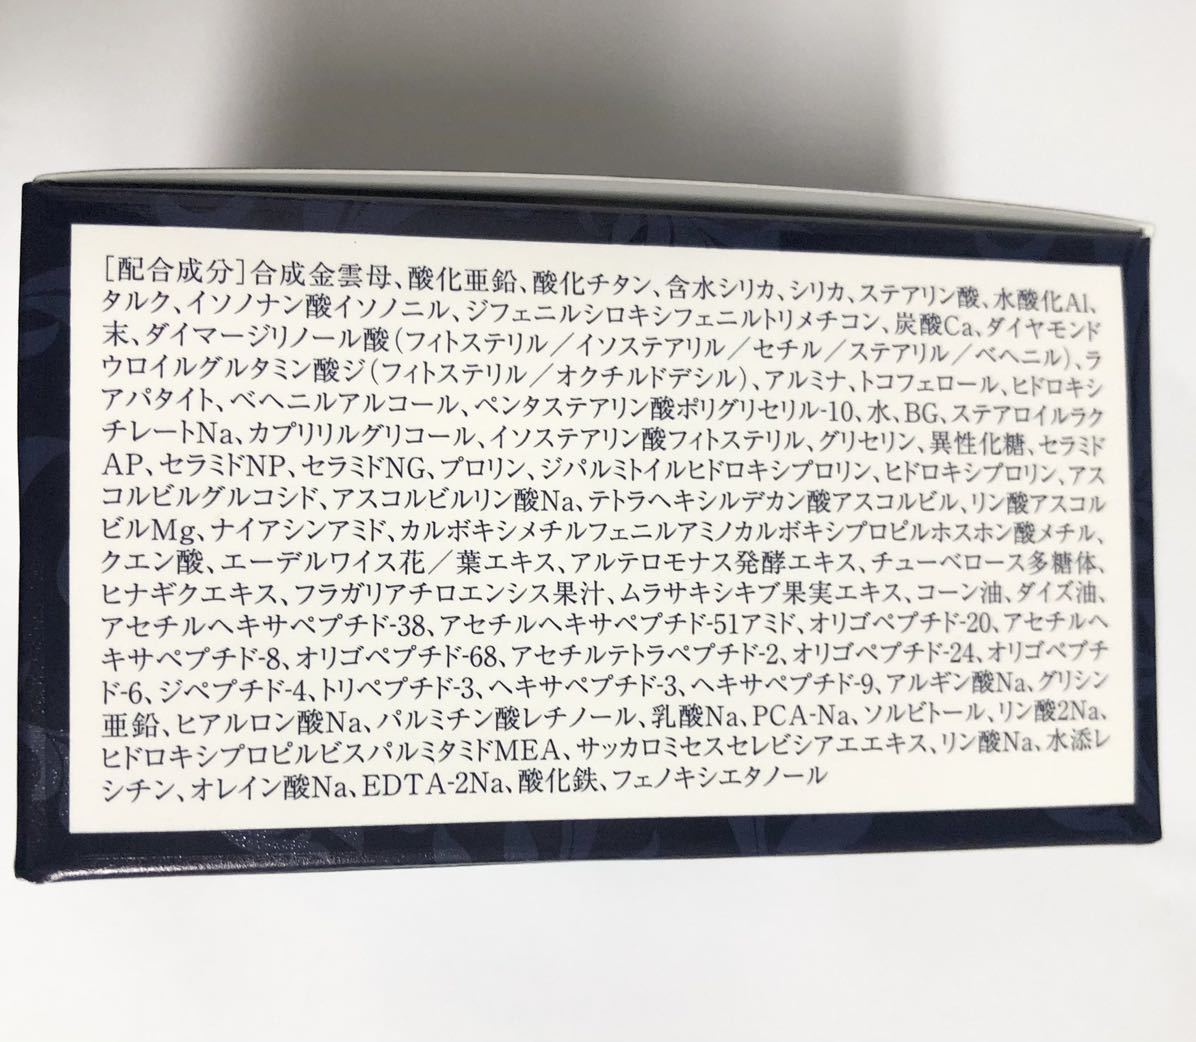 [配合成分]合成金雲母、酸化亜鉛、酸化チタン、含水シリカ、シリカ、ステアリン酸、水酸化Al、
タルク、イソノナン酸イソノニル、ジフェニルシロキシフェニルトリメチコン、炭酸Ca、ダイヤモンド
末、ダイマージリノール酸(フィトステリル/イソステアリル/セチル/ステアリル/ベヘニル)、ラ
ウロイルグルタミン酸ジ(フィトステリル/オクチルドデシル)、アルミナ、トコフェロール、ヒドロキシ
アパタイト、ベヘニルアルコール、ペンタステアリン酸ポリグリセリル-10、水、BG、ステアロイルラク
チレートNa、カプリリルグリコール、イソステアリン酸フィトステリル、グリセリン、異性化糖、セラミド
AP、セラミドNP、セラミドNG、プロリン、ジパルミトイルヒドロキシプロリン、ヒドロキシプロリン、アス
コルビルグルコシド、アスコルビルリン酸Na、テトラヘキシルデカン酸アスコルビル、リン酸アスコル
ビルMg、ナイアシンアミド、カルボキシメチルフェニルアミノカルボキシプロピルホスホン酸メチル、
クエン酸、エーデルワイス花/葉エキス、アルテロモナス発酵エキス、チューベロース多糖体、
ヒナギクエキス、フラガリアチロエンシス果汁、ムラサキシキブ果実エキス、コーン油、ダイズ油、
アセチルヘキサペプチド-38、アセチルヘキサペプチド-51アミド、オリゴペプチド-20、アセチルヘ
キサペプチド-8、オリゴペプチド-68、アセチルテトラペプチド-2、オリゴペプチド-24、オリゴペプチ
ド-6、ジペプチド-4、トリペプチド-3、ヘキサペプチド-3、ヘキサペプチド-9、アルギン酸Na、グリシン
亜鉛、ヒアルロン酸Na、パルミチン酸レチノール、乳酸Na、PCA-Na、ソルビトール、リン酸2Na、
ヒドロキシプロピルビスパルミタミドMEA、サッカロミセスセレビシアエエキス、リン酸Na、水添レ
シチン、オレイン酸Na、EDTA-2Na、酸化鉄、フェノキシエタノール